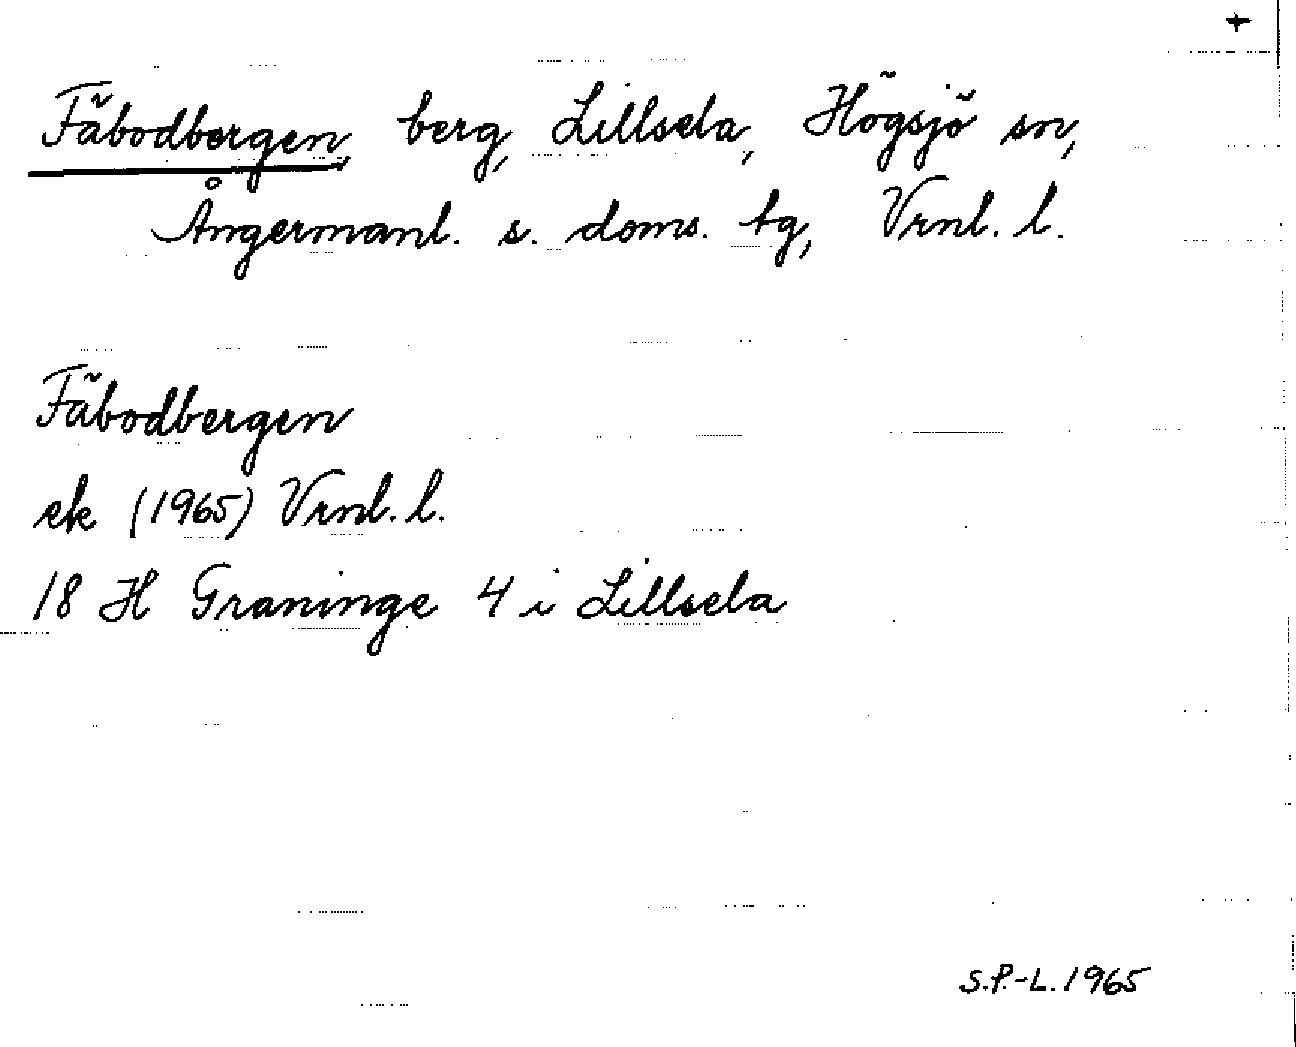 +
Fäbodbergen, berg, Lillsela, Högsjö sn,
Ångermanl. s. doms. tg, Vrnl. l.
Fäbodbergen
ek (1965) Vrnl. l.
18 H Graninge 4 i Lillsela
S.P.-L. 1965